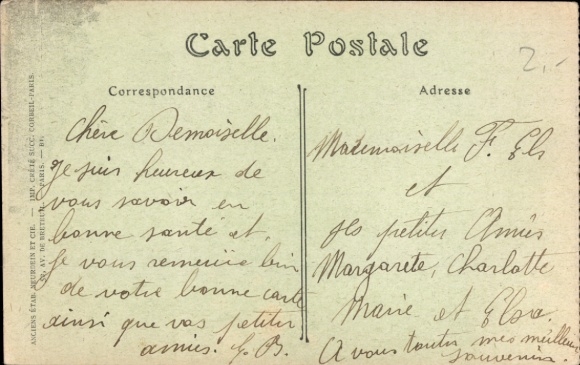 Carte Postale
2.-
Correspondance
Adresse
Chère Demoiselle.
Je suis heureux de
vous savoir en
bonne santé et
Je vous remercie bien
de votre bonne carte
ainsi que vos petites
amies. G. B.
Mademoiselle F. Els
et
ses petites Amies
Margarete, Charlotte
Marie et Elsa.
A vous toutes mes meilleurs
souvenirs.
ANCIENS ÉTAB. NEURDEIN ET CIE. — IMP. CRÉTÉ SUCC. CORBEIL-PARIS.
AV. DE BRETEUIL PARIS.